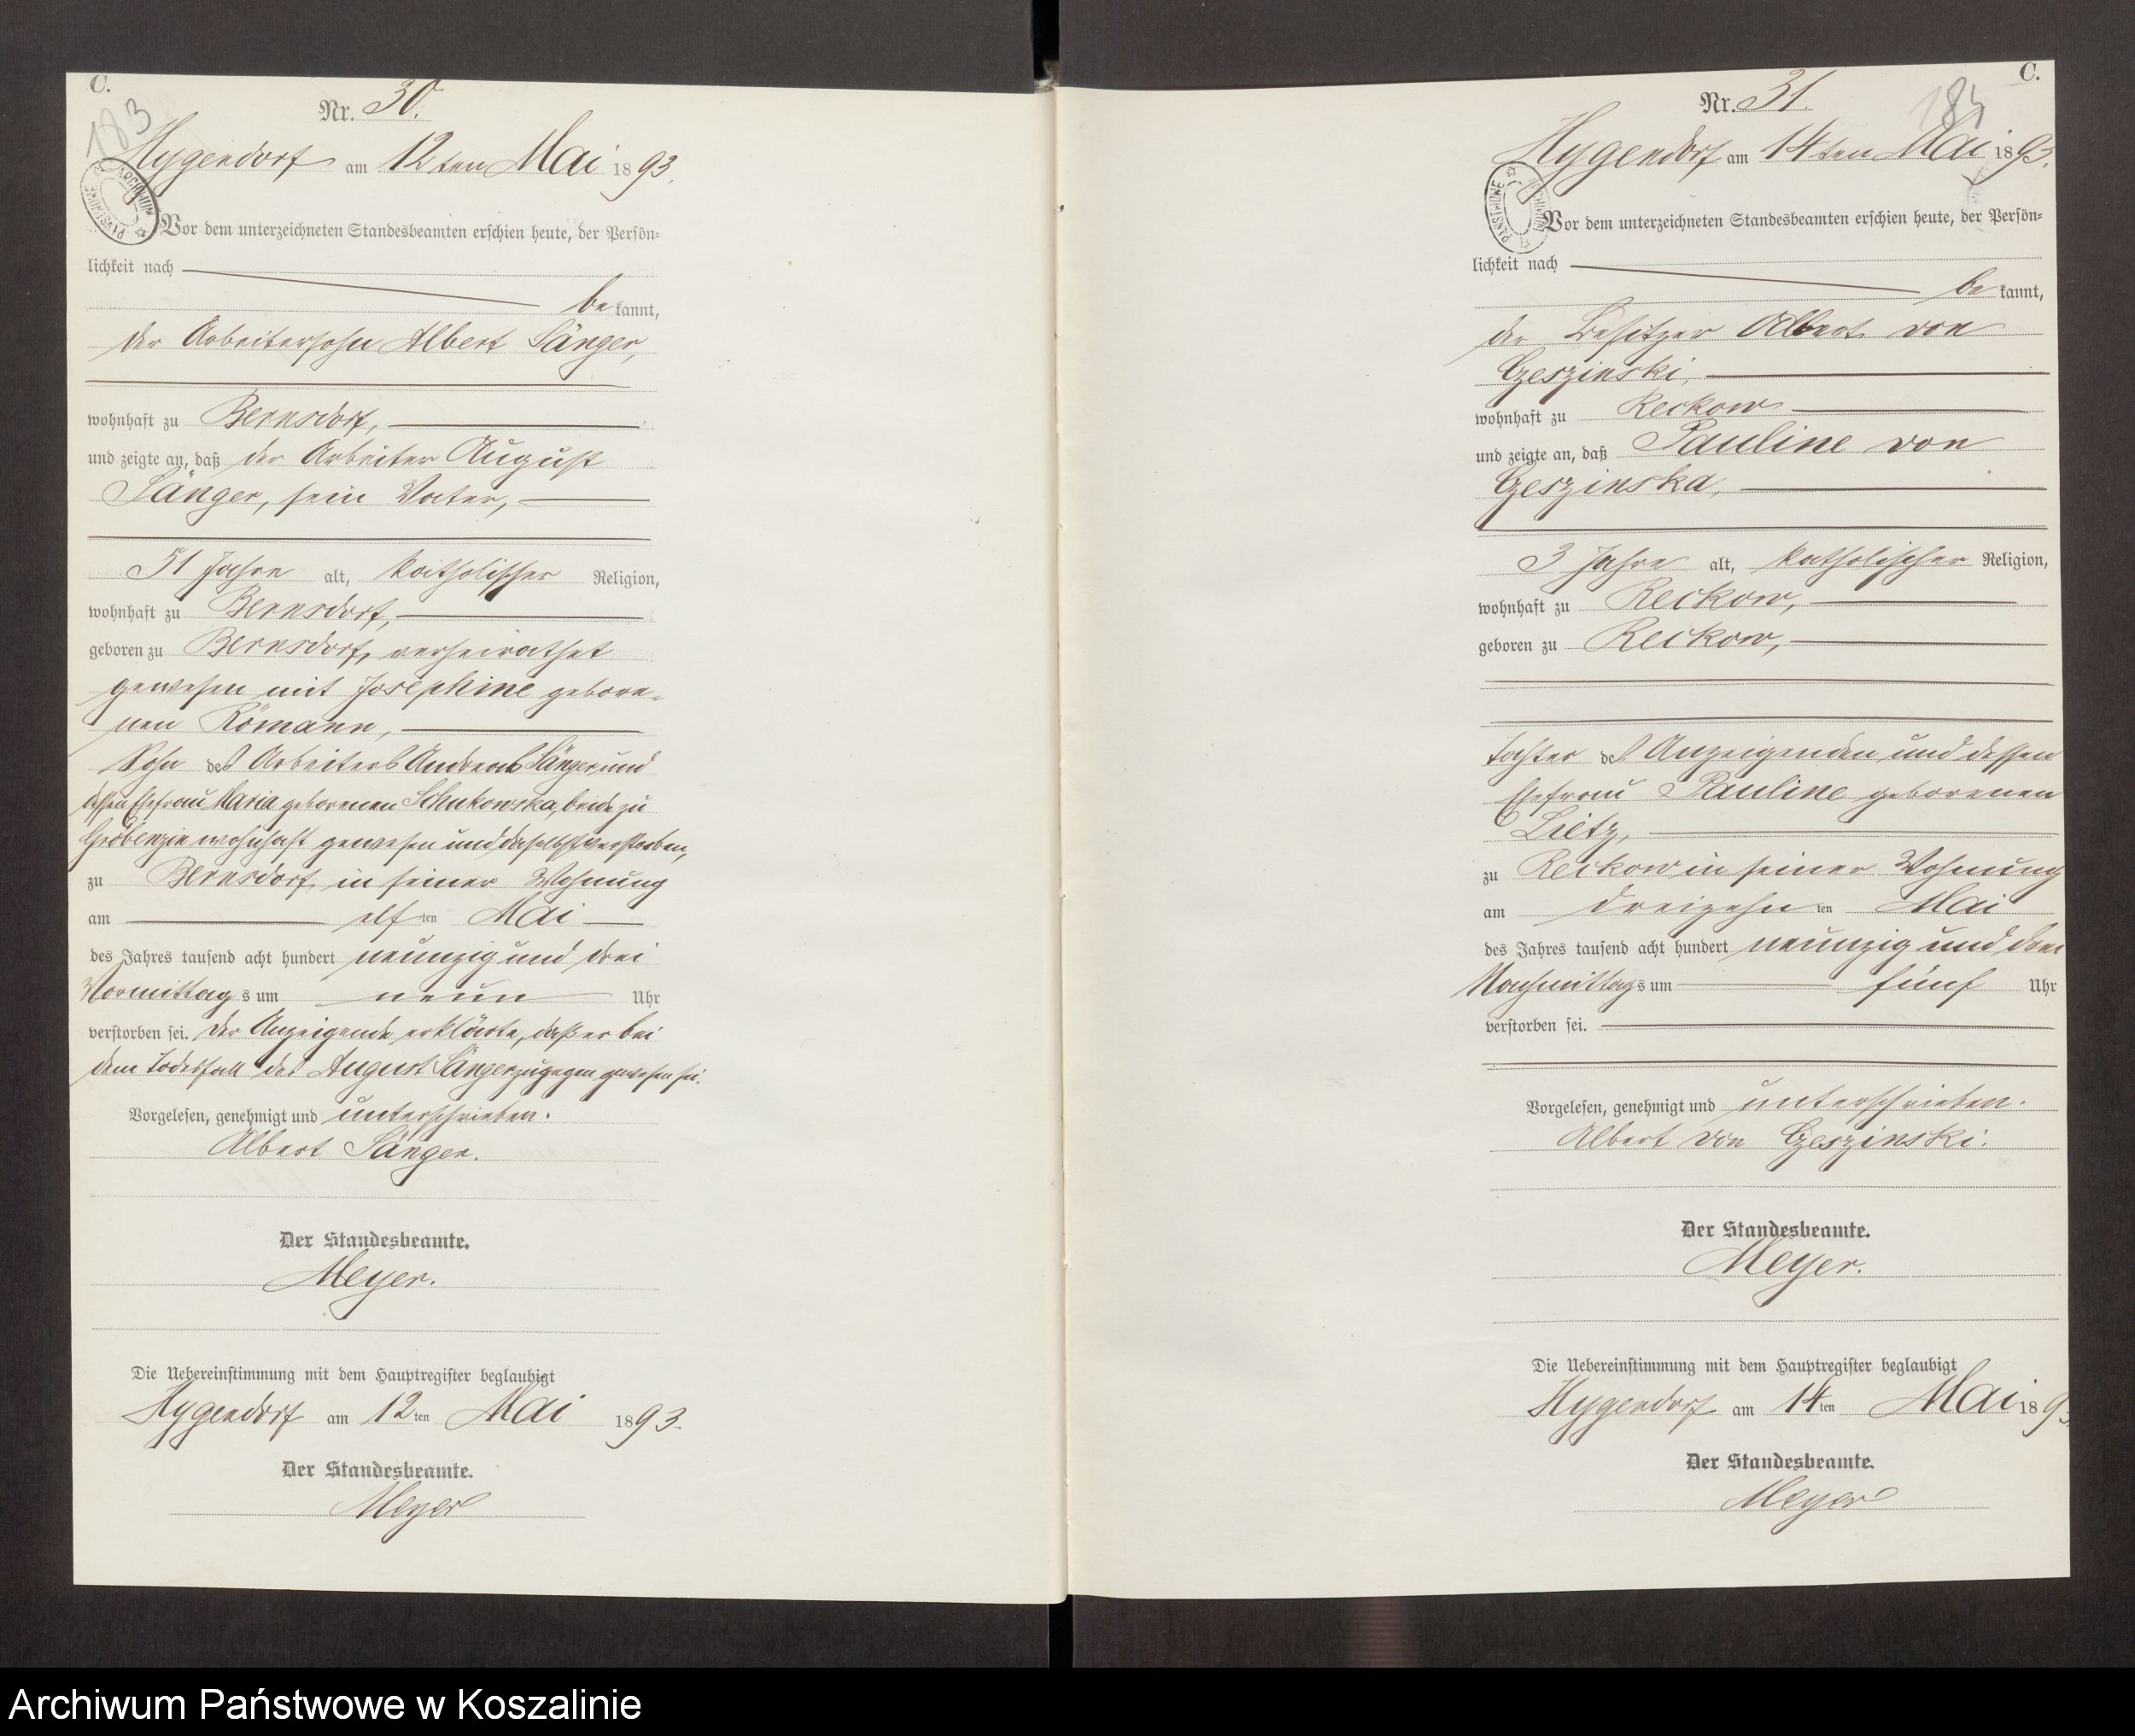 C.
183
Nr. 30.
Hygendorf am 12ten Mai 1893.
Vor dem unterzeichneten Standesbeamten erschien heute, der Persön-
lichkeit nach
bekannt,
der Arbeitersohn Albert Sänger,
wohnhaft zu Bernsdorf,
und zeigte an, daß der Arbeiter August
Sänger, sein Vater,
51 Jahre alt, katholischer Religion,
wohnhaft zu Bernsdorf,
geboren zu Bernsdorf, verheirathet
gewesen mit Josephine gebore-
nen Römann,
Sohn des Arbeiters Andreas Sänger und
dessen Ehefrau Maria geborenen Schukowska, beide zu
Gröbenzin wohnhaft gewesen und daselbst verstorben,
zu Bernsdorf in seiner Wohnung
am elften Mai
des Jahres tausend acht hundert neunzig und drei
Vormittags um neun Uhr
verstorben sei. Der Anzeigende erklärte, daß er bei
dem Todesfall des August Sänger zugegen gewesen sei.
Vorgelesen, genehmigt und unterschrieben.
Albert Sänger.
Der Standesbeamte.
Meyer.
Die Uebereinstimmung mit dem Hauptregister beglaubigt
Hygendorf am 12ten Mai 1893.
Der Standesbeamte.
Meyer
C.
184
Nr. 31.
Hygendorf am 14ten Mai 1893.
Vor dem unterzeichneten Standesbeamten erschien heute, der Persön-
lichkeit nach
bekannt,
der Besitzer Albert von
Czeszinski,
wohnhaft zu Reckow
und zeigte an, daß Pauline von
Czeszinska,
3 Jahre alt, katholischer Religion,
wohnhaft zu Reckow,
geboren zu Reckow,
Tochter des Anzeigenden und dessen
Ehefrau Pauline geborenen
Lietz,
zu Reckow in seiner Wohnung
am dreizehnten Mai
des Jahres tausend acht hundert neunzig und drei
Nachmittags um fünf Uhr
verstorben sei.
Vorgelesen, genehmigt und unterschrieben.
Albert von Czeszinski.
Der Standesbeamte.
Meyer.
Die Uebereinstimmung mit dem Hauptregister beglaubigt
Hygendorf am 14ten Mai 189
Der Standesbeamte.
Meyer
Archiwum Państwowe w Koszalinie